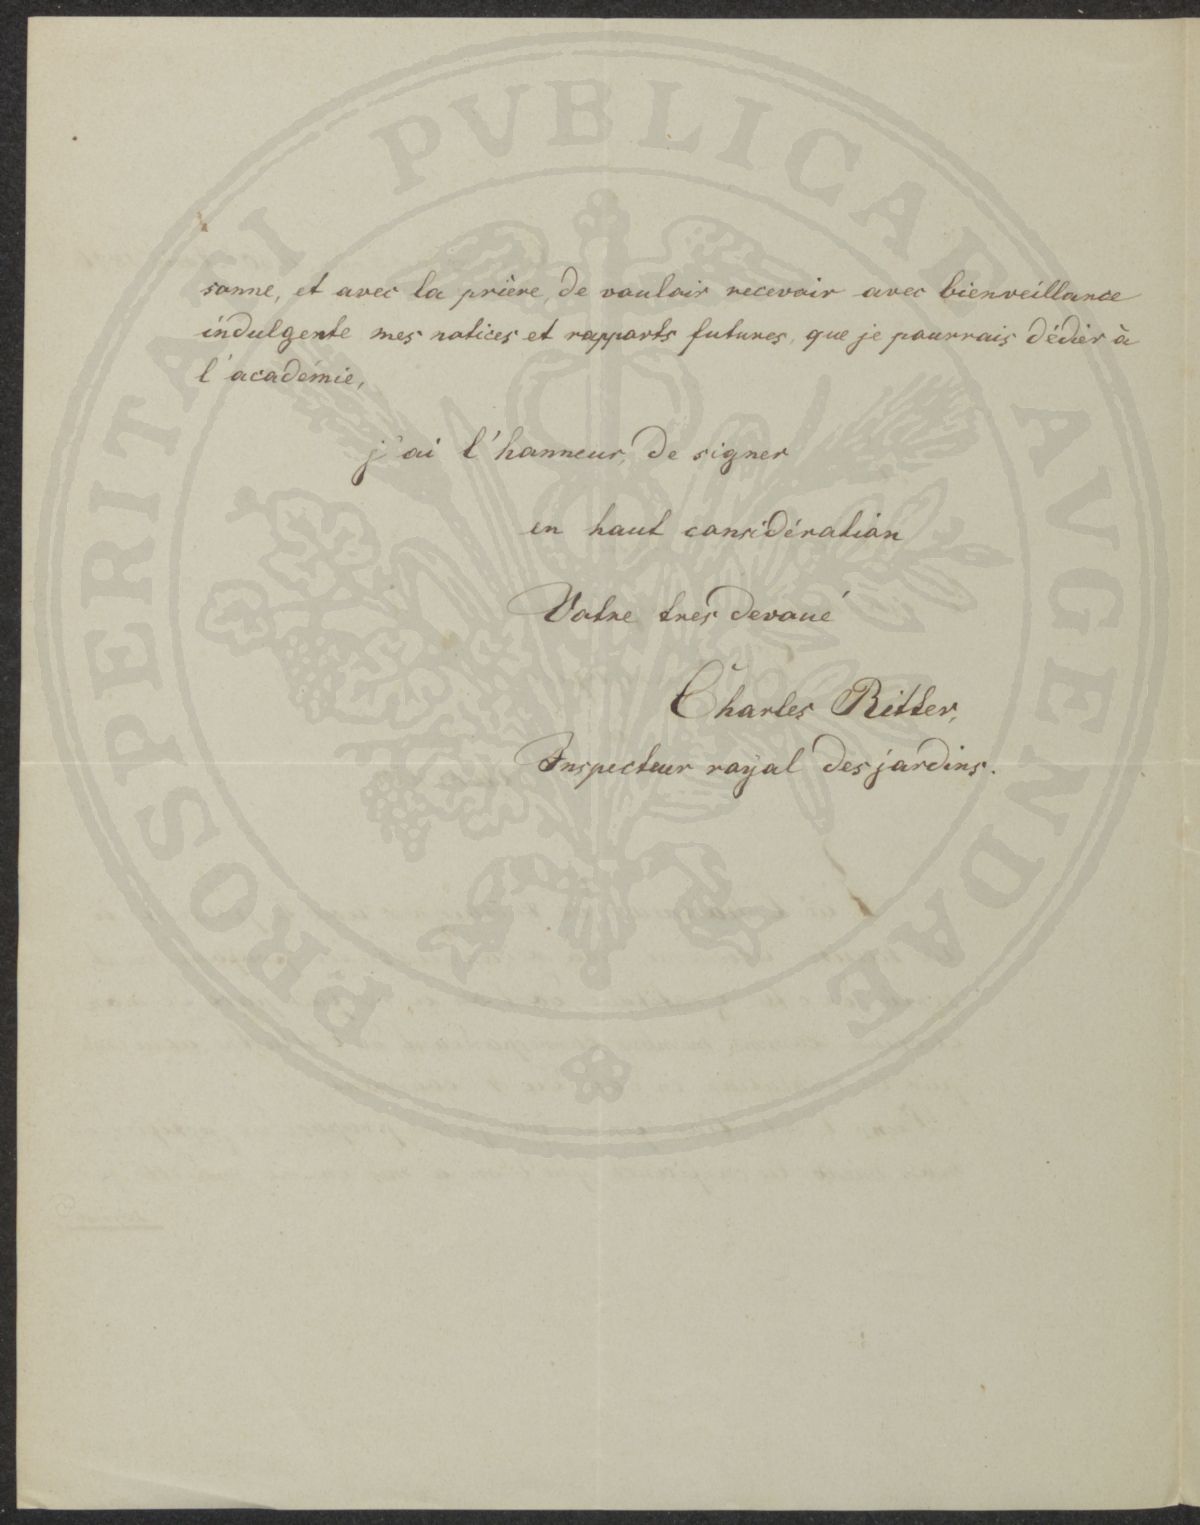 sonne, et avec la prière, de vouloir recevoir avec bienveillance
indulgente mes notices et rapports futures, que je pourrais dédier à
l'académie,
j'ai l'honneur, de signer
en haut considération
Votre tres devoué
Charles Ritter,
Inspecteur royal des jardins.
PROSPERITATI PVBLICAE AVGENDAE